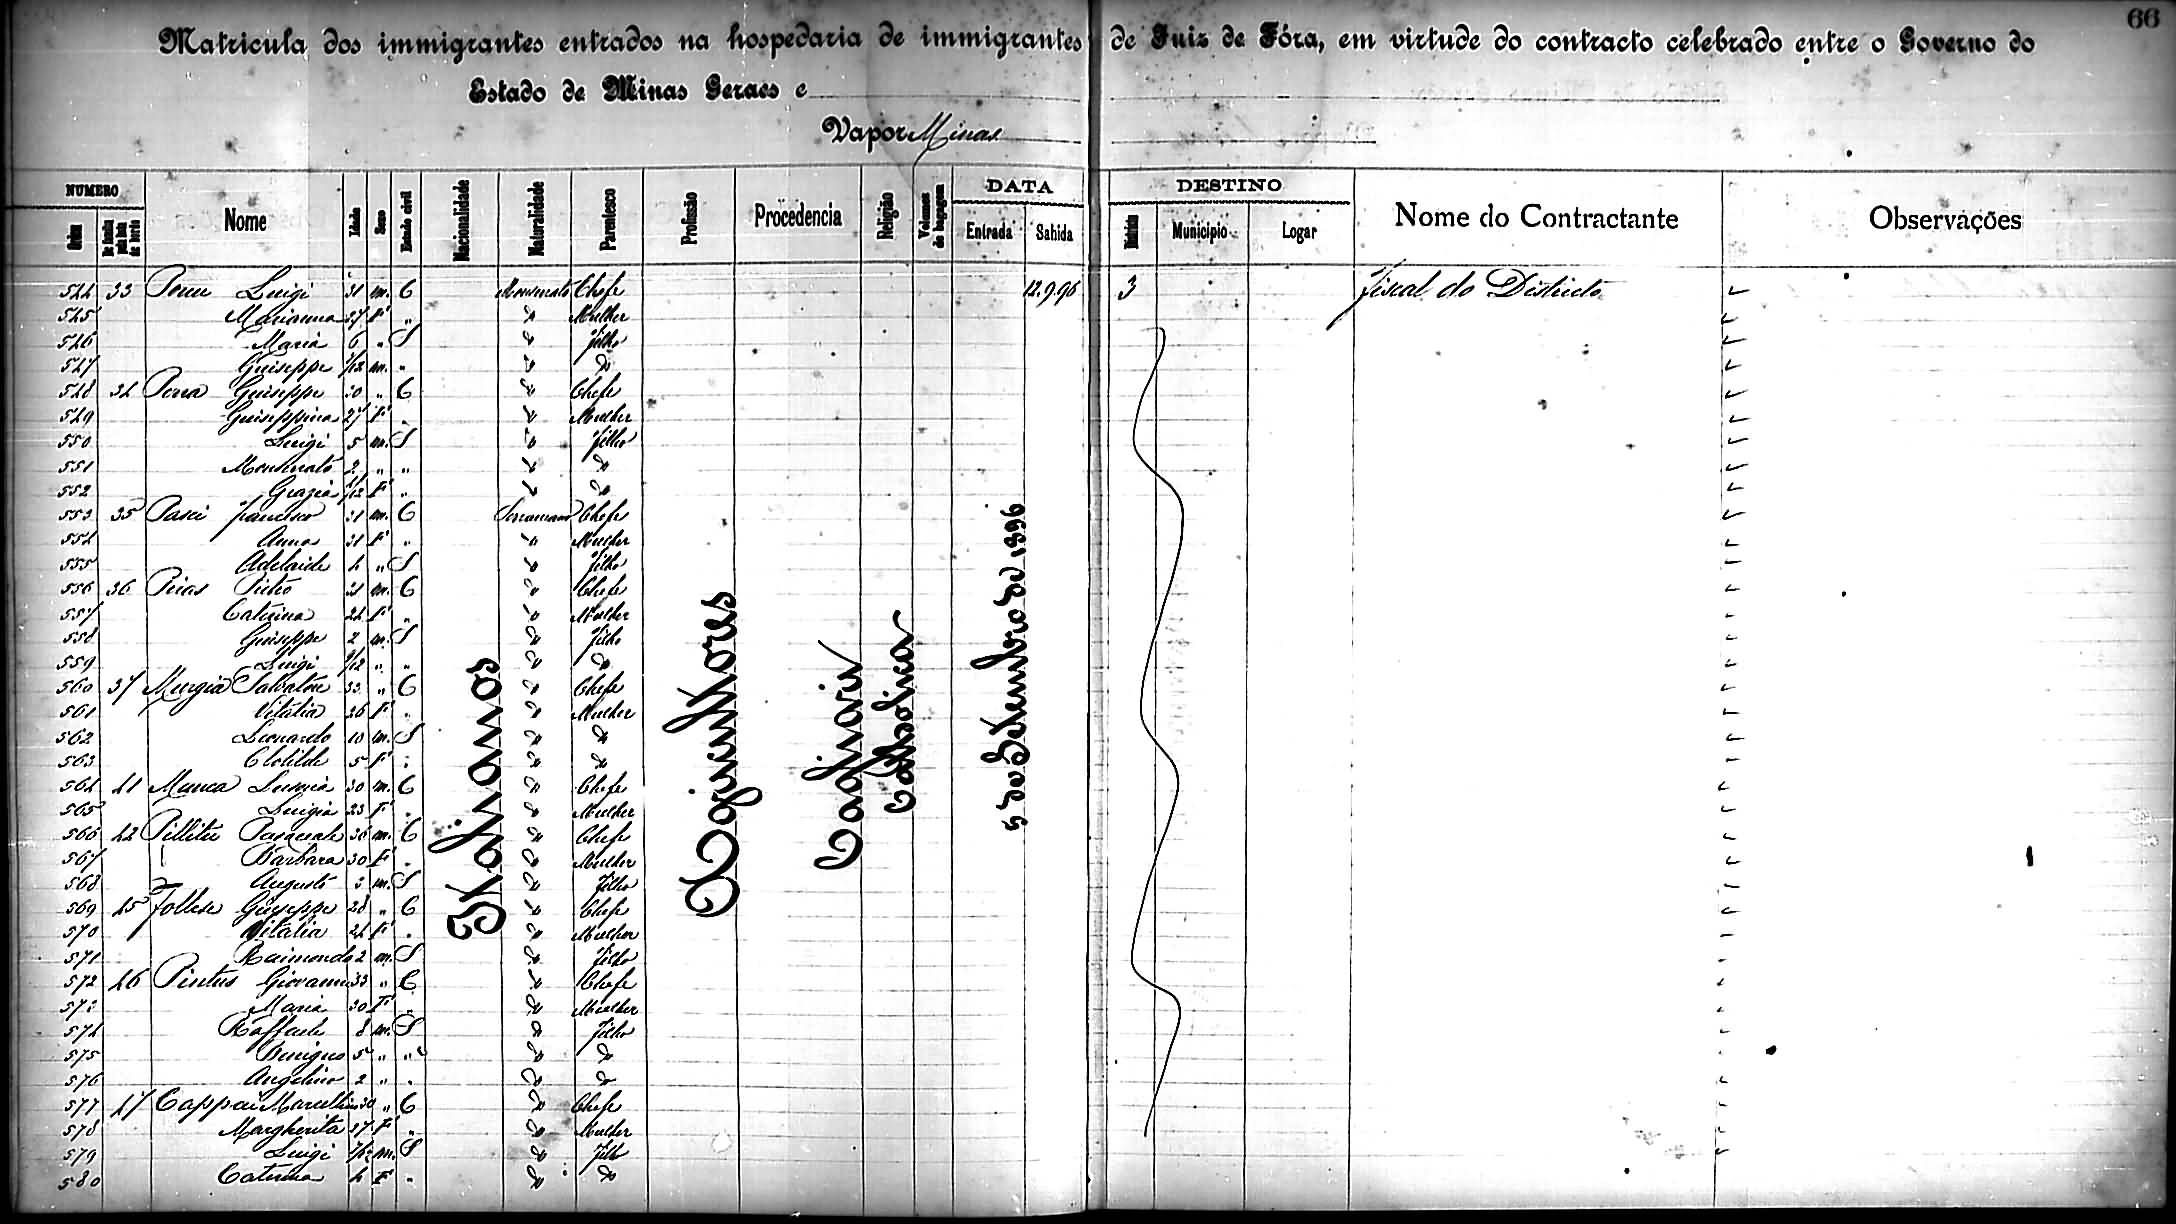 66
Matricula dos immigrantes entrados na hospedaria de immigrantes de Juiz de Fóra, em virtude do contracto celebrado entre o Governo do
Estado de Minas Geraes e
Vapor Minas
NUMERO Nome Idade Sexo Estado civil Nacionalidade Naturalidade Parentesco Profissão Procedencia Religião Volumes de bagagem DATA DESTINO Nome do Contractante Observações
Ordem De familia pela lista de bordo Entrada Sahida Districto Municipio Logar
544 33 Luigi 31 m. C Monserrato Chefe 12.9.96 3 Fiscal do Districto
545 Marianna 27 F " " Mulher
546 Maria 6 " S " Filho
547 Guiseppe /12 m. " " "
548 34 Perra Guiseppe 30 " C " Chefe
549 Guiseppina 27 F " " Mulher
550 Luigi 5 m. S " Filho
551 Monserrato 2 " " " "
552 Grazia /12 F " " "
553 35 Pasci Francisco 31 m. C Chefe
554 Anna 31 F " " Mulher
555 Adelaide 4 " S " Filho
556 36 Piras Pietro 31 m. C " Chefe
557 Caterina 24 F " " Mulher
558 Guiseppe 2 m. S " Filho
559 Luigi /12 " " " "
560 37 Murgia Salvatore 33 " C " Chefe
561 Vitalia 26 F " " Mulher
562 Leonardo 10 m. S " "
563 Clotilde 5 F " " "
564 41 Manca 30 m. C " Chefe
565 Luigia 23 F " " Mulher
566 42 Pillitu Pasquale 36 m. C " Chefe
567 Barbara 30 F " " Mulher
568 Augusto 3 m. S " Filho
569 45 Follese Giuseppe 28 " C " Chefe
570 Vitalia 24 F " " Mulher
571 Raimondo 2 m. S " Filho
572 46 Pintus Giovanni 33 " C " Chefe
573 Maria 30 F " " Mulher
574 Raffaele 8 m. S " Filho
575 Benigno 5 " " " "
576 Angelino 2 " " " "
577 47 Cappai Marcellino 30 " C " Chefe
578 Margherita 27 F " " Mulher
579 Luigi m. S " Filho
580 Caterina 4 F " " "
Italianos
Agricultores
Cagliari
Catholica
5 de Setembro de 1896